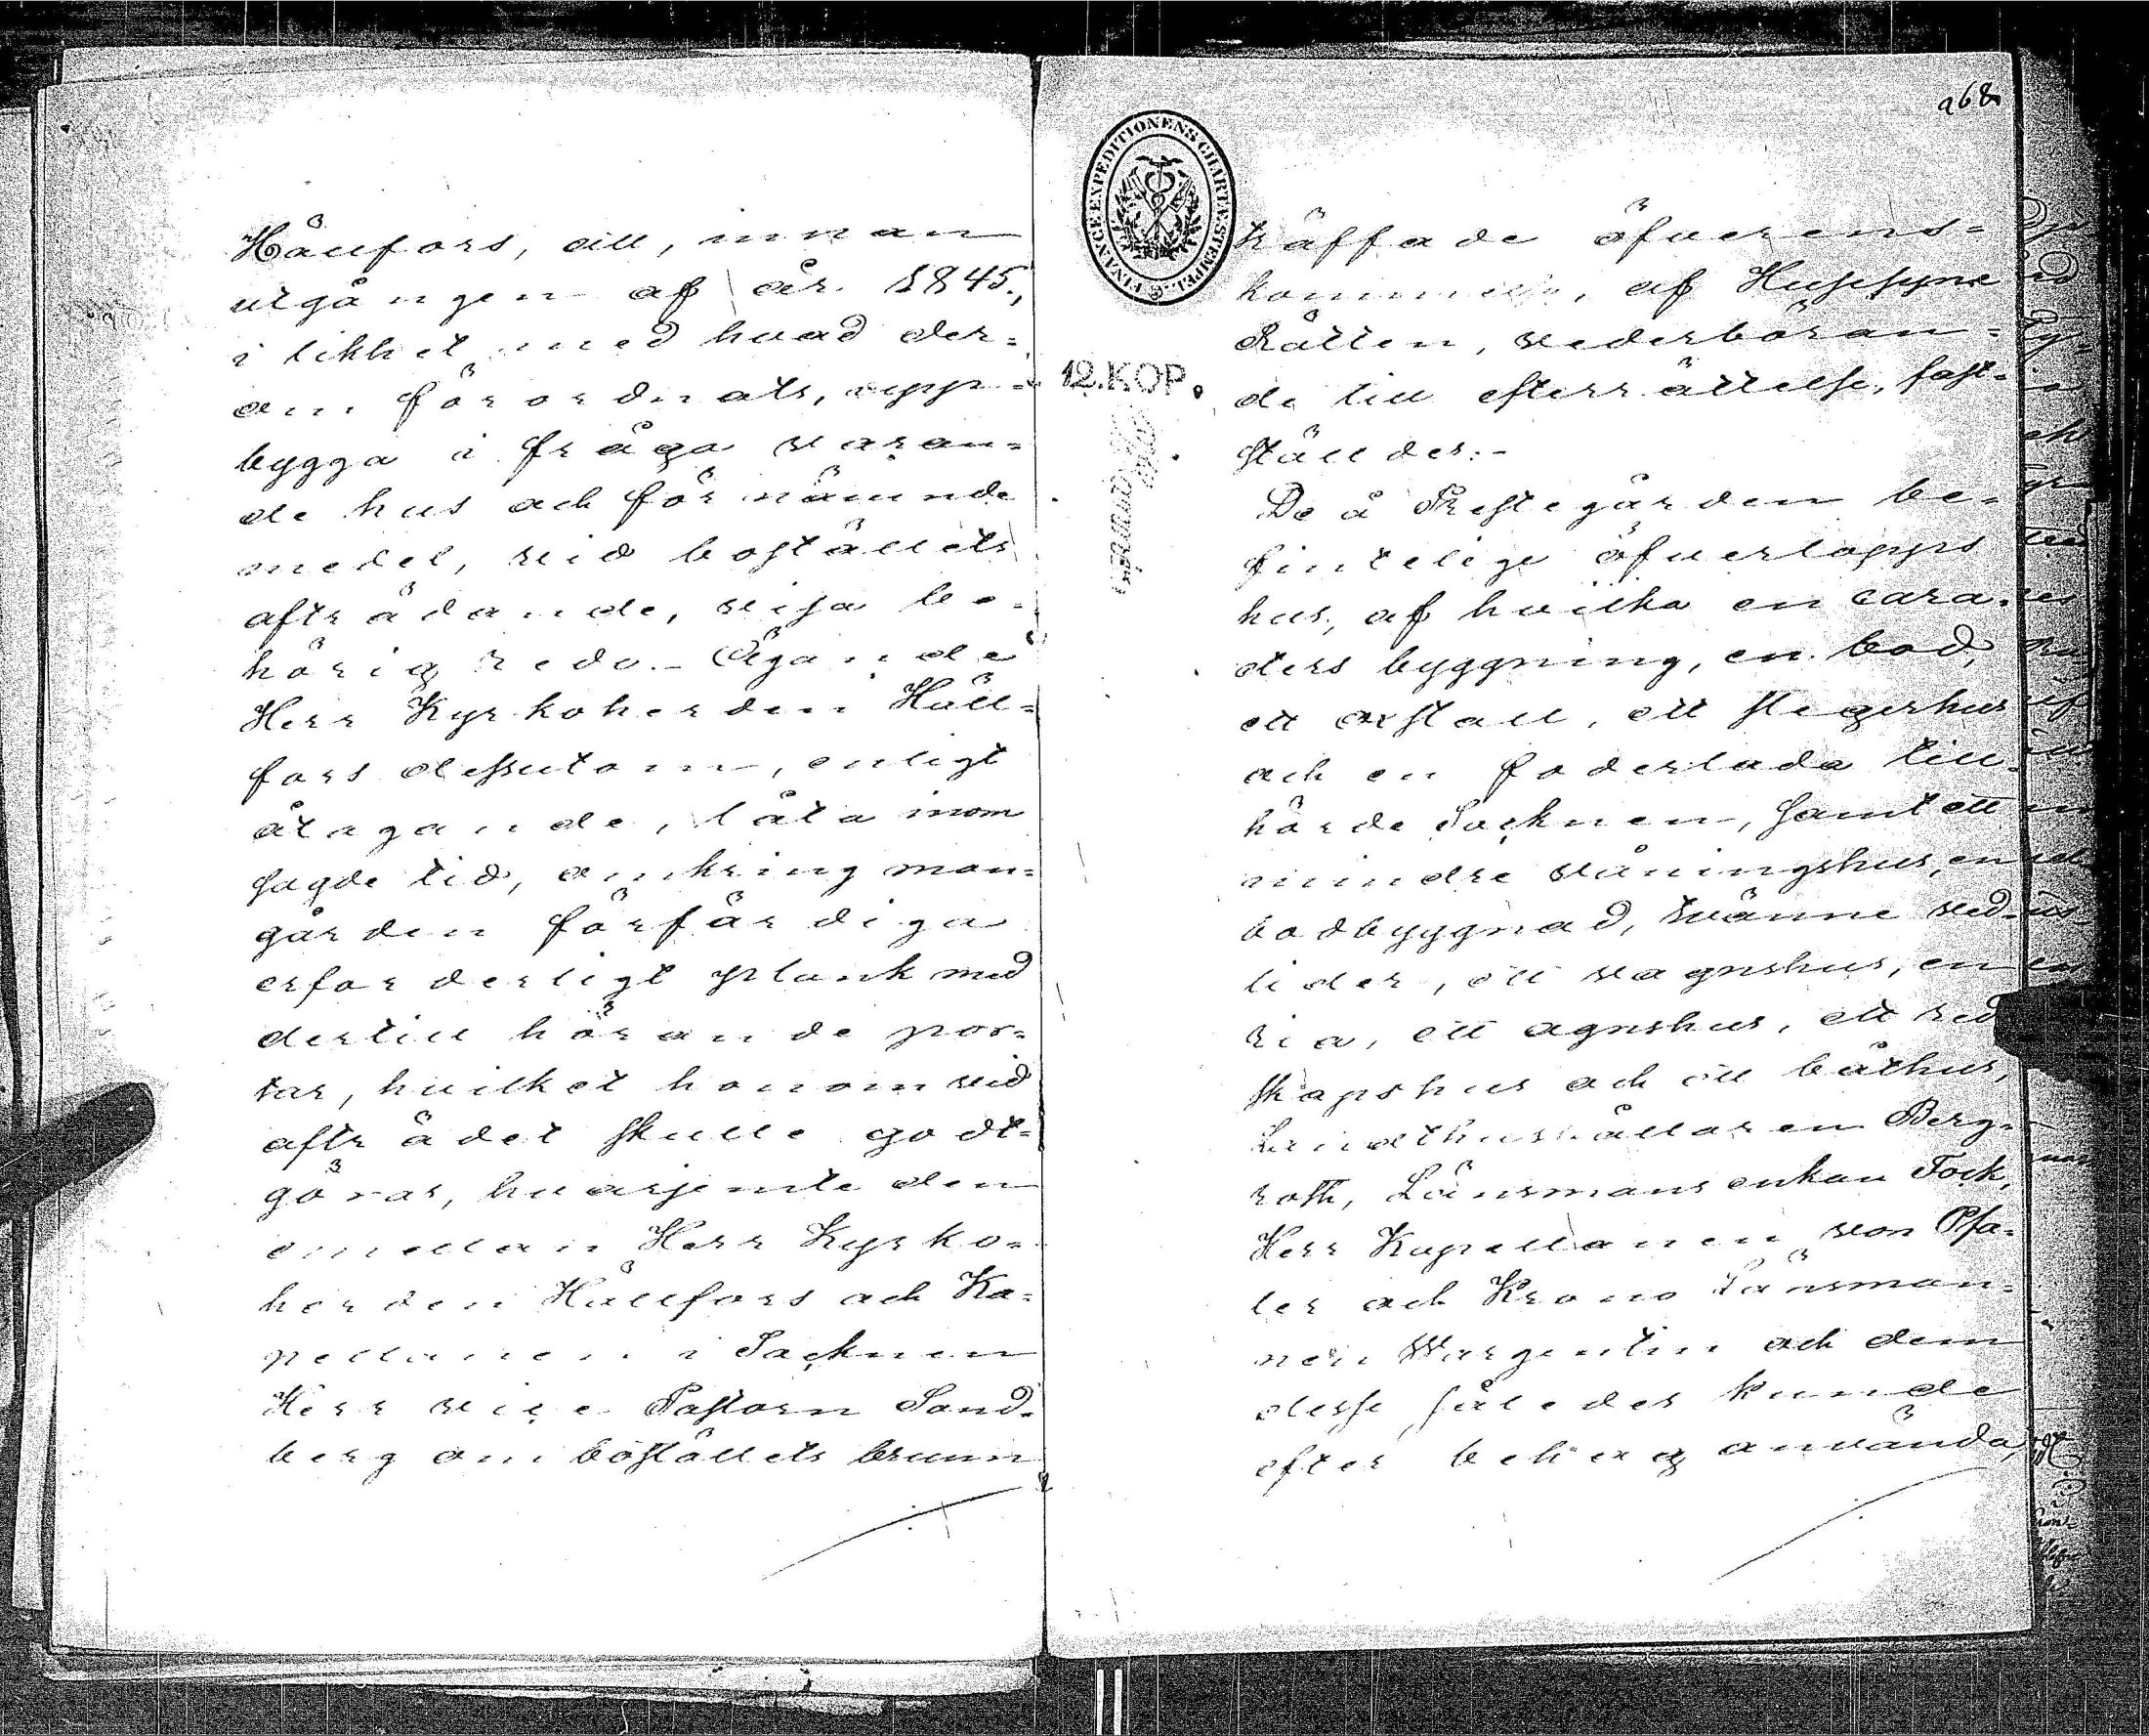 Hällfors, att, innan
utgången af år 1845,
i likhet med hvad der-
om förordnats, upp-
bygga i fråga varan-
de hus och för nämnde
medel, vid boställets
afträdande, visa be-
hörig redo. - Ägande
Herr Kyrkoherden Häll-
fors dessutom, enligt
åtagande, låta inom
sagde tid, omkring man-
gården förfärdiga
erforderligt plank med
dertill hörande por-
tar, hvilket honom vid
afträdet skulle godt-
göras, hvarjemte den
emellan Herr Kyrko-
herden Hällfors och Ka-
pellanen i Socknen
Herr vice Pastorn Sand-
berg om boställets brunn
268.
FINANCE EXPEDITIONENS CHARTÆ STEMPEL
12.KOP.
träffade öfverens-
kommelse, af Husesyns
Rätten, vederböran-
de till efterrättelse, fast-
ställdes. -
De å Prestegården be-
fintelige öfverlopps
hus, af hvilka en cara-
cters byggning, en bod,
ett oxstall, ett stegerhus
och en foderlada till-
hörde Socknen, samt ett
mindre våningshus, en
bodbyggnad, tvänne ved-
lider, ett vagnshus, en
ria, ett agnshus, ett red-
skapshus och ett båthus,
Landthushållaren Berg-
roth, Länsmansenkan Fock,
Herr Kapellanen von Pfa-
ler och Krono Länsman-
nen Wargentin och dem
desse således kunde
efter behag använda,